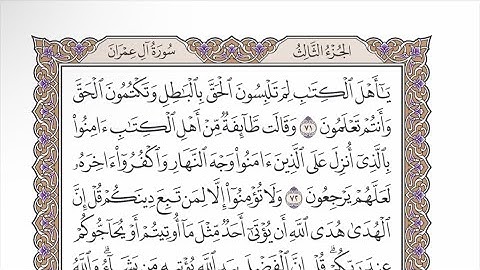 الجُزْءُ الثَّالِثُ
سُورَةُ آلِ عِمْرَان
يَٰٓأَهْلَ ٱلْكِتَٰبِ لِمَ تَلْبِسُونَ ٱلْحَقَّ بِٱلْبَٰطِلِ وَتَكْتُمُونَ ٱلْحَقَّ
وَأَنتُمْ تَعْلَمُونَ ٧١ وَقَالَت طَّآئِفَةٌ مِّنْ أَهْلِ ٱلْكِتَٰبِ ءَامِنُوا۟
بِٱلَّذِىٓ أُنزِلَ عَلَى ٱلَّذِينَ ءَامَنُوا۟ وَجْهَ ٱلنَّهَارِ وَٱكْفُرُوٓا۟ ءَاخِرَهُۥ
لَعَلَّهُمْ يَرْجِعُونَ ٧٢ وَلَا تُؤْمِنُوٓا۟ إِلَّا لِمَن تَبِعَ دِينَكُمْ قُلْ إِنَّ
ٱلْهُدَىٰ هُدَى ٱللَّهِ أَن يُؤْتَىٰٓ أَحَدٌ مِّثْلَ مَآ أُوتِيتُمْ أَوْ يُحَآجُّوكُمْ
عِندَ رَبِّكُمْ قُلْ إِنَّ ٱلْفَضْلَ بِيَدِ ٱللَّهِ يُؤْتِيهِ مَن يَشَآءُ وَٱللَّهُ